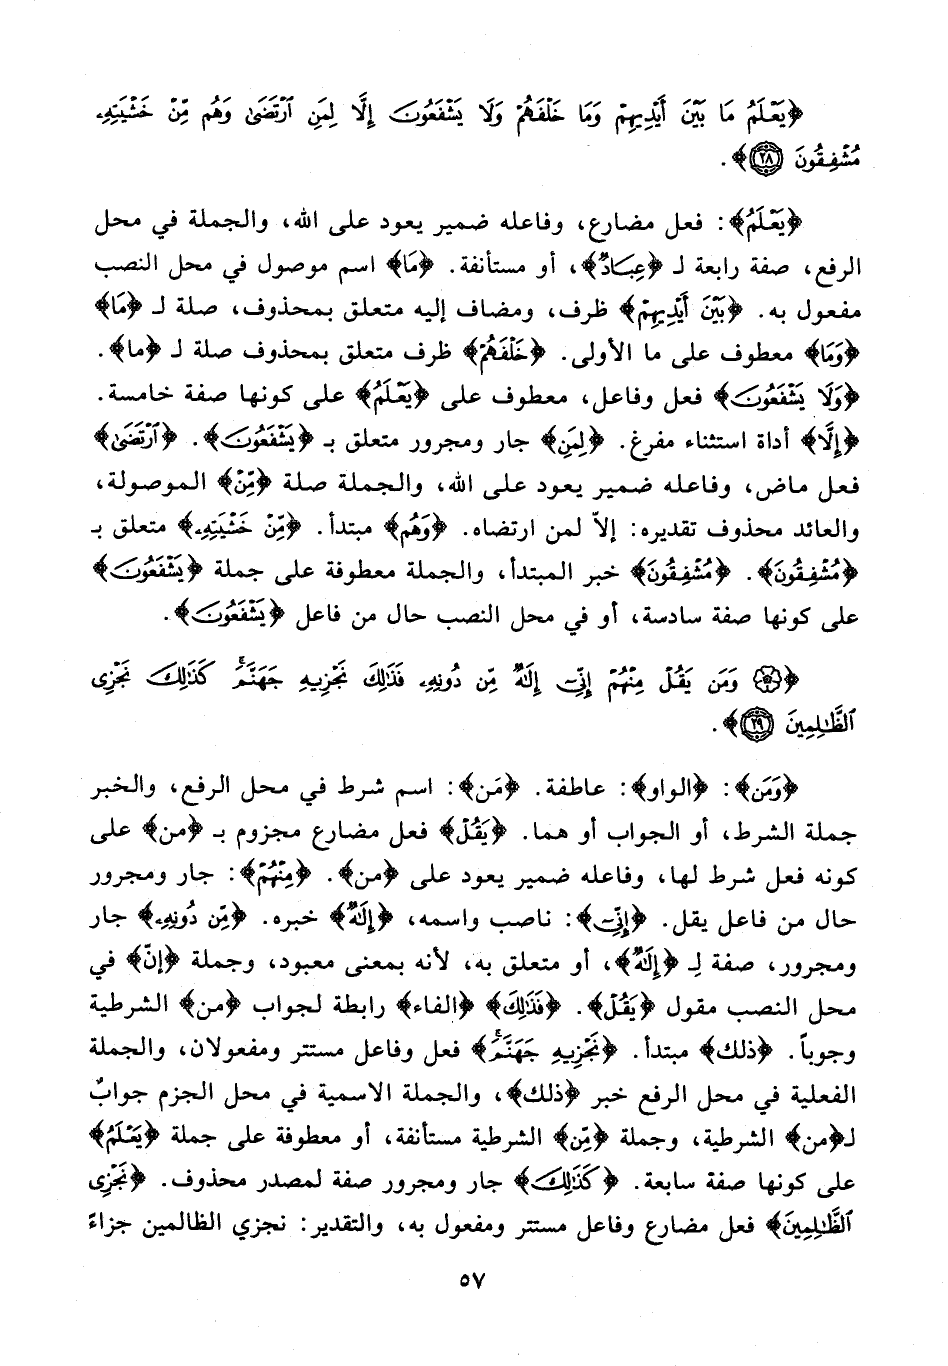 ﴿يَعْلَمُ مَا بَيْنَ أَيْدِيهِمْ وَمَا خَلْفَهُمْ وَلَا يَشْفَعُونَ إِلَّا لِمَنِ ٱرْتَضَىٰ وَهُم مِّنْ خَشْيَتِهِۦ
مُشْفِقُونَ ۝٢٨﴾.
﴿يَعْلَمُ﴾: فعل مضارع، وفاعله ضمير يعود على الله، والجملة في محل
الرفع، صفة رابعة لـ ﴿عِبَادٌ﴾، أو مستأنفة. ﴿مَا﴾ اسم موصول في محل النصب
مفعول به. ﴿بَيْنَ أَيْدِيهِمْ﴾ ظرف، ومضاف إليه متعلق بمحذوف، صلة لـ ﴿مَا﴾
﴿وَمَا﴾ معطوف على ما الأولى. ﴿خَلْفَهُمْ﴾ ظرف متعلق بمحذوف صلة لـ ﴿ما﴾.
﴿وَلَا يَشْفَعُونَ﴾ فعل وفاعل، معطوف على ﴿يَعْلَمُ﴾ على كونها صفة خامسة.
﴿إِلَّا﴾ أداة استثناء مفرغ. ﴿لِمَنِ﴾ جار ومجرور متعلق بـ ﴿يَشْفَعُونَ﴾. ﴿ٱرْتَضَىٰ﴾
فعل ماض، وفاعله ضمير يعود على الله، والجملة صلة ﴿مِّنْ﴾ الموصولة،
والعائد محذوف تقديره: إلاّ لمن ارتضاه. ﴿وَهُم﴾ مبتدأ. ﴿مِّنْ خَشْيَتِهِۦ﴾ متعلق بـ
﴿مُشْفِقُونَ﴾. ﴿مُشْفِقُونَ﴾ خبر المبتدأ، والجملة معطوفة على جملة ﴿يَشْفَعُونَ﴾
على كونها صفة سادسة، أو في محل النصب حال من فاعل ﴿يَشْفَعُونَ﴾.
﴿۞ وَمَن يَقُلْ مِنْهُمْ إِنِّىٓ إِلَٰهٌ مِّن دُونِهِۦ فَذَٰلِكَ نَجْزِيهِ جَهَنَّمَ ۚ كَذَٰلِكَ نَجْزِى
ٱلظَّٰلِمِينَ ۝٢٩﴾.
﴿وَمَن﴾: ﴿الواو﴾: عاطفة. ﴿مَن﴾: اسم شرط في محل الرفع، والخبر
جملة الشرط، أو الجواب أو هما. ﴿يَقُلْ﴾ فعل مضارع مجزوم بـ ﴿من﴾ على
كونه فعل شرط لها، وفاعله ضمير يعود على ﴿من﴾. ﴿مِنْهُمْ﴾: جار ومجرور
حال من فاعل يقل. ﴿إِنِّىٓ﴾: ناصب واسمه، ﴿إِلَٰهٌ﴾ خبره. ﴿مِّن دُونِهِۦ﴾ جار
ومجرور، صفة لِـ ﴿إِلَٰهٌ﴾، أو متعلق به، لأنه بمعنى معبود، وجملة ﴿إنّ﴾ في
محل النصب مقول ﴿يَقُلْ﴾. ﴿فَذَٰلِكَ﴾ ﴿الفاء﴾ رابطة لجواب ﴿من﴾ الشرطية
وجوباً. ﴿ذلك﴾ مبتدأ. ﴿نَجْزِيهِ جَهَنَّمَ ۚ﴾ فعل وفاعل مستتر ومفعولان، والجملة
الفعلية في محل الرفع خبر ﴿ذلك﴾، والجملة الاسمية في محل الجزم جوابٌ
لـ﴿من﴾ الشرطية، وجملة ﴿مِّن﴾ الشرطية مستأنفة، أو معطوفة على جملة ﴿يَعْلَمُ﴾
على كونها صفة سابعة. ﴿كَذَٰلِكَ﴾ جار ومجرور صفة لمصدر محذوف. ﴿نَجْزِى
ٱلظَّٰلِمِينَ﴾ فعل مضارع وفاعل مستتر ومفعول به، والتقدير: نجزي الظالمين جزاءً
٥٧